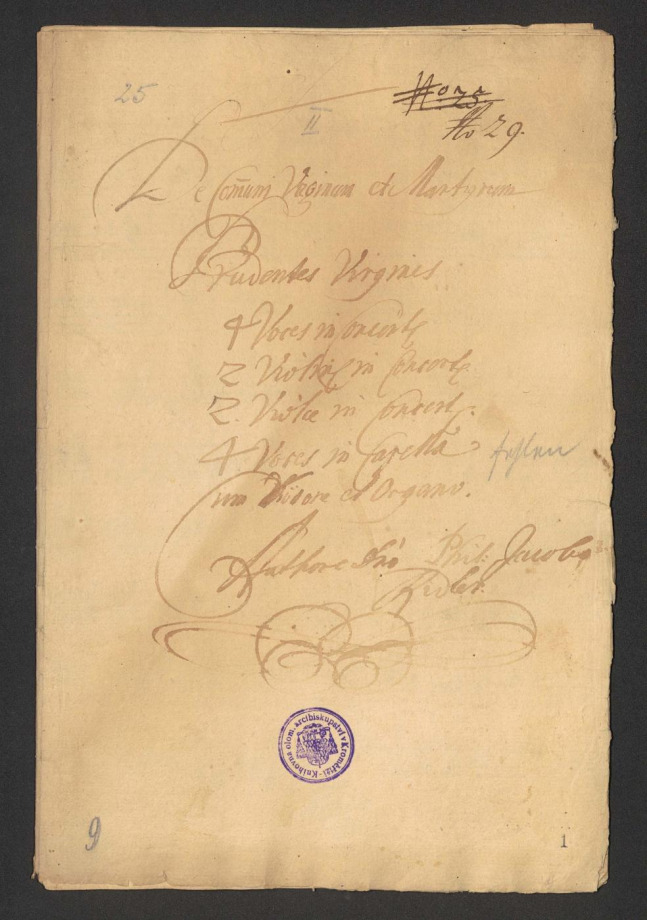 25
II
No 25.
No 29.
De Com̄uni Virginum et Martyrum
Prudentes Virgines
4 Voces in Concert:
2 Violini in Concert:
2. Violæ in Concert:
4 Voces in Capella
fehlen
Cum Organo.
Authore Dno Phil: Jacobo
Ridler
Knihovna olom. arcibiskupství v Kroměříži
9
1